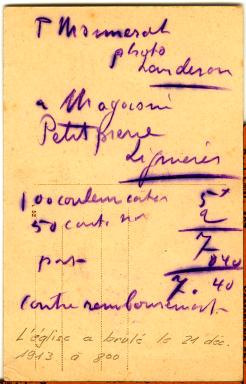 T Monnerat
photo
Landeron
a Magasin
Petitpierre
Lignières
100 couleur cartes 5
50 carte 2
7
port 0 40
7. 40
contre remboursement.
L'église a brulé le 21 déc.
1913 à 800